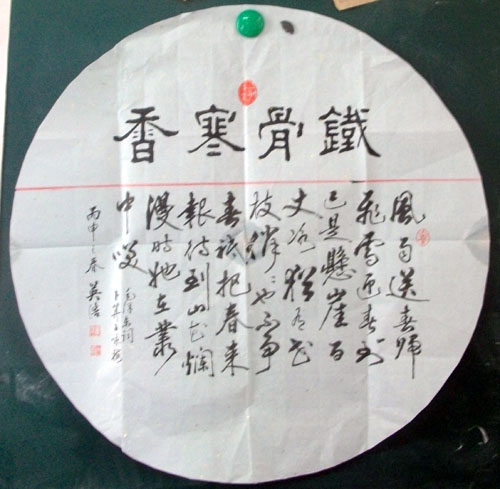 鐵骨寒香
風雨送春歸
飛雪迎春到
已是懸崖百
丈冰猶有花
枝俏〻也不争
春祇把春来
報待到山花爛
漫時她在叢
中咲
毛澤东词
卜算子咏梅
丙申之春英